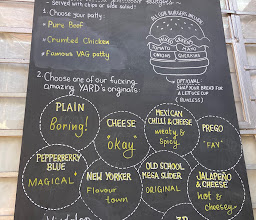 served with chips or side salad!
1. Choose your patty:
* Pure Beef
* Crumbed Chicken
* Famous VAG patty
ALL OUR BURGERS INCLUDE
MIXED GREENS
TOMATO MAYO
ONIONS GHERKINS
OPTIONAL
SWAP YOUR BREAD FOR
A LETTUCE CUP
(BUNLESS)
2. Choose one of our fucking
amazing YARD's originals:
PLAIN
Boring!
CHEESE
"okay
MEXICAN
CHILLI & CHEESE
meaty &
spicy.
PREGO
"FAV"
PEPPERBERRY
BLUE
MAGICAL"
NEW YORKER
Flavour
town
OLD SCHOOL
MEGA SLIDER
ORIGINAL
JALAPEÑO
& CHEESE
hot &
cheesey